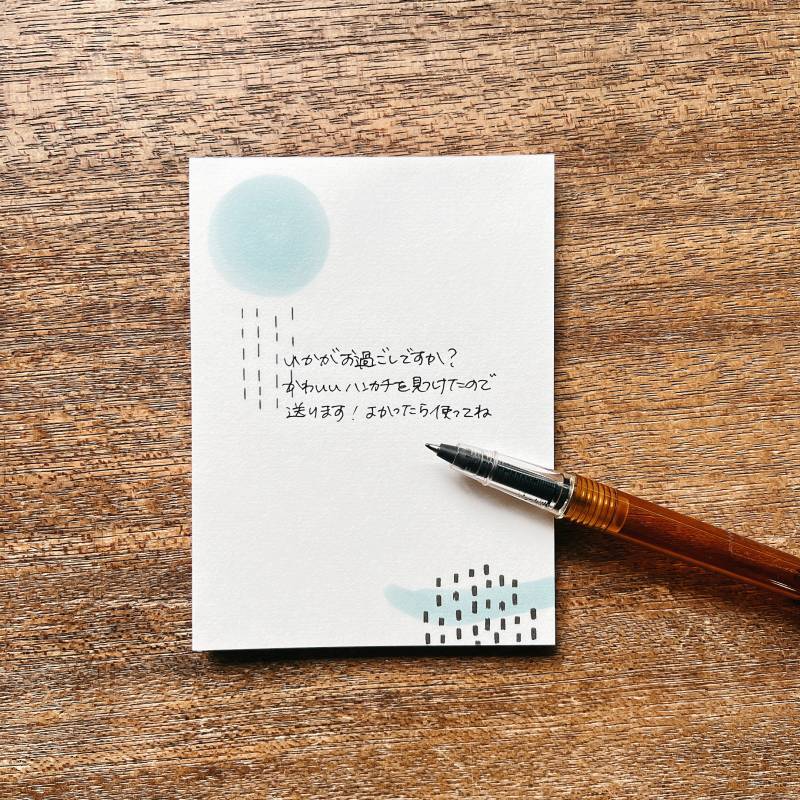 いかがお過ごしですか？
かわいいハンカチを見つけたので
送ります！よかったら使ってね